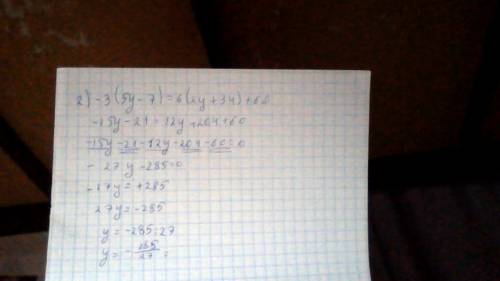 2) -3(5y-7)=6(2y+34)+60
-15y-21=12y+204+60
-15y-21-12y-204-60=0
-27y-285=0
-27y=+285
27y=-285
y=-285:27
y=-285/27=